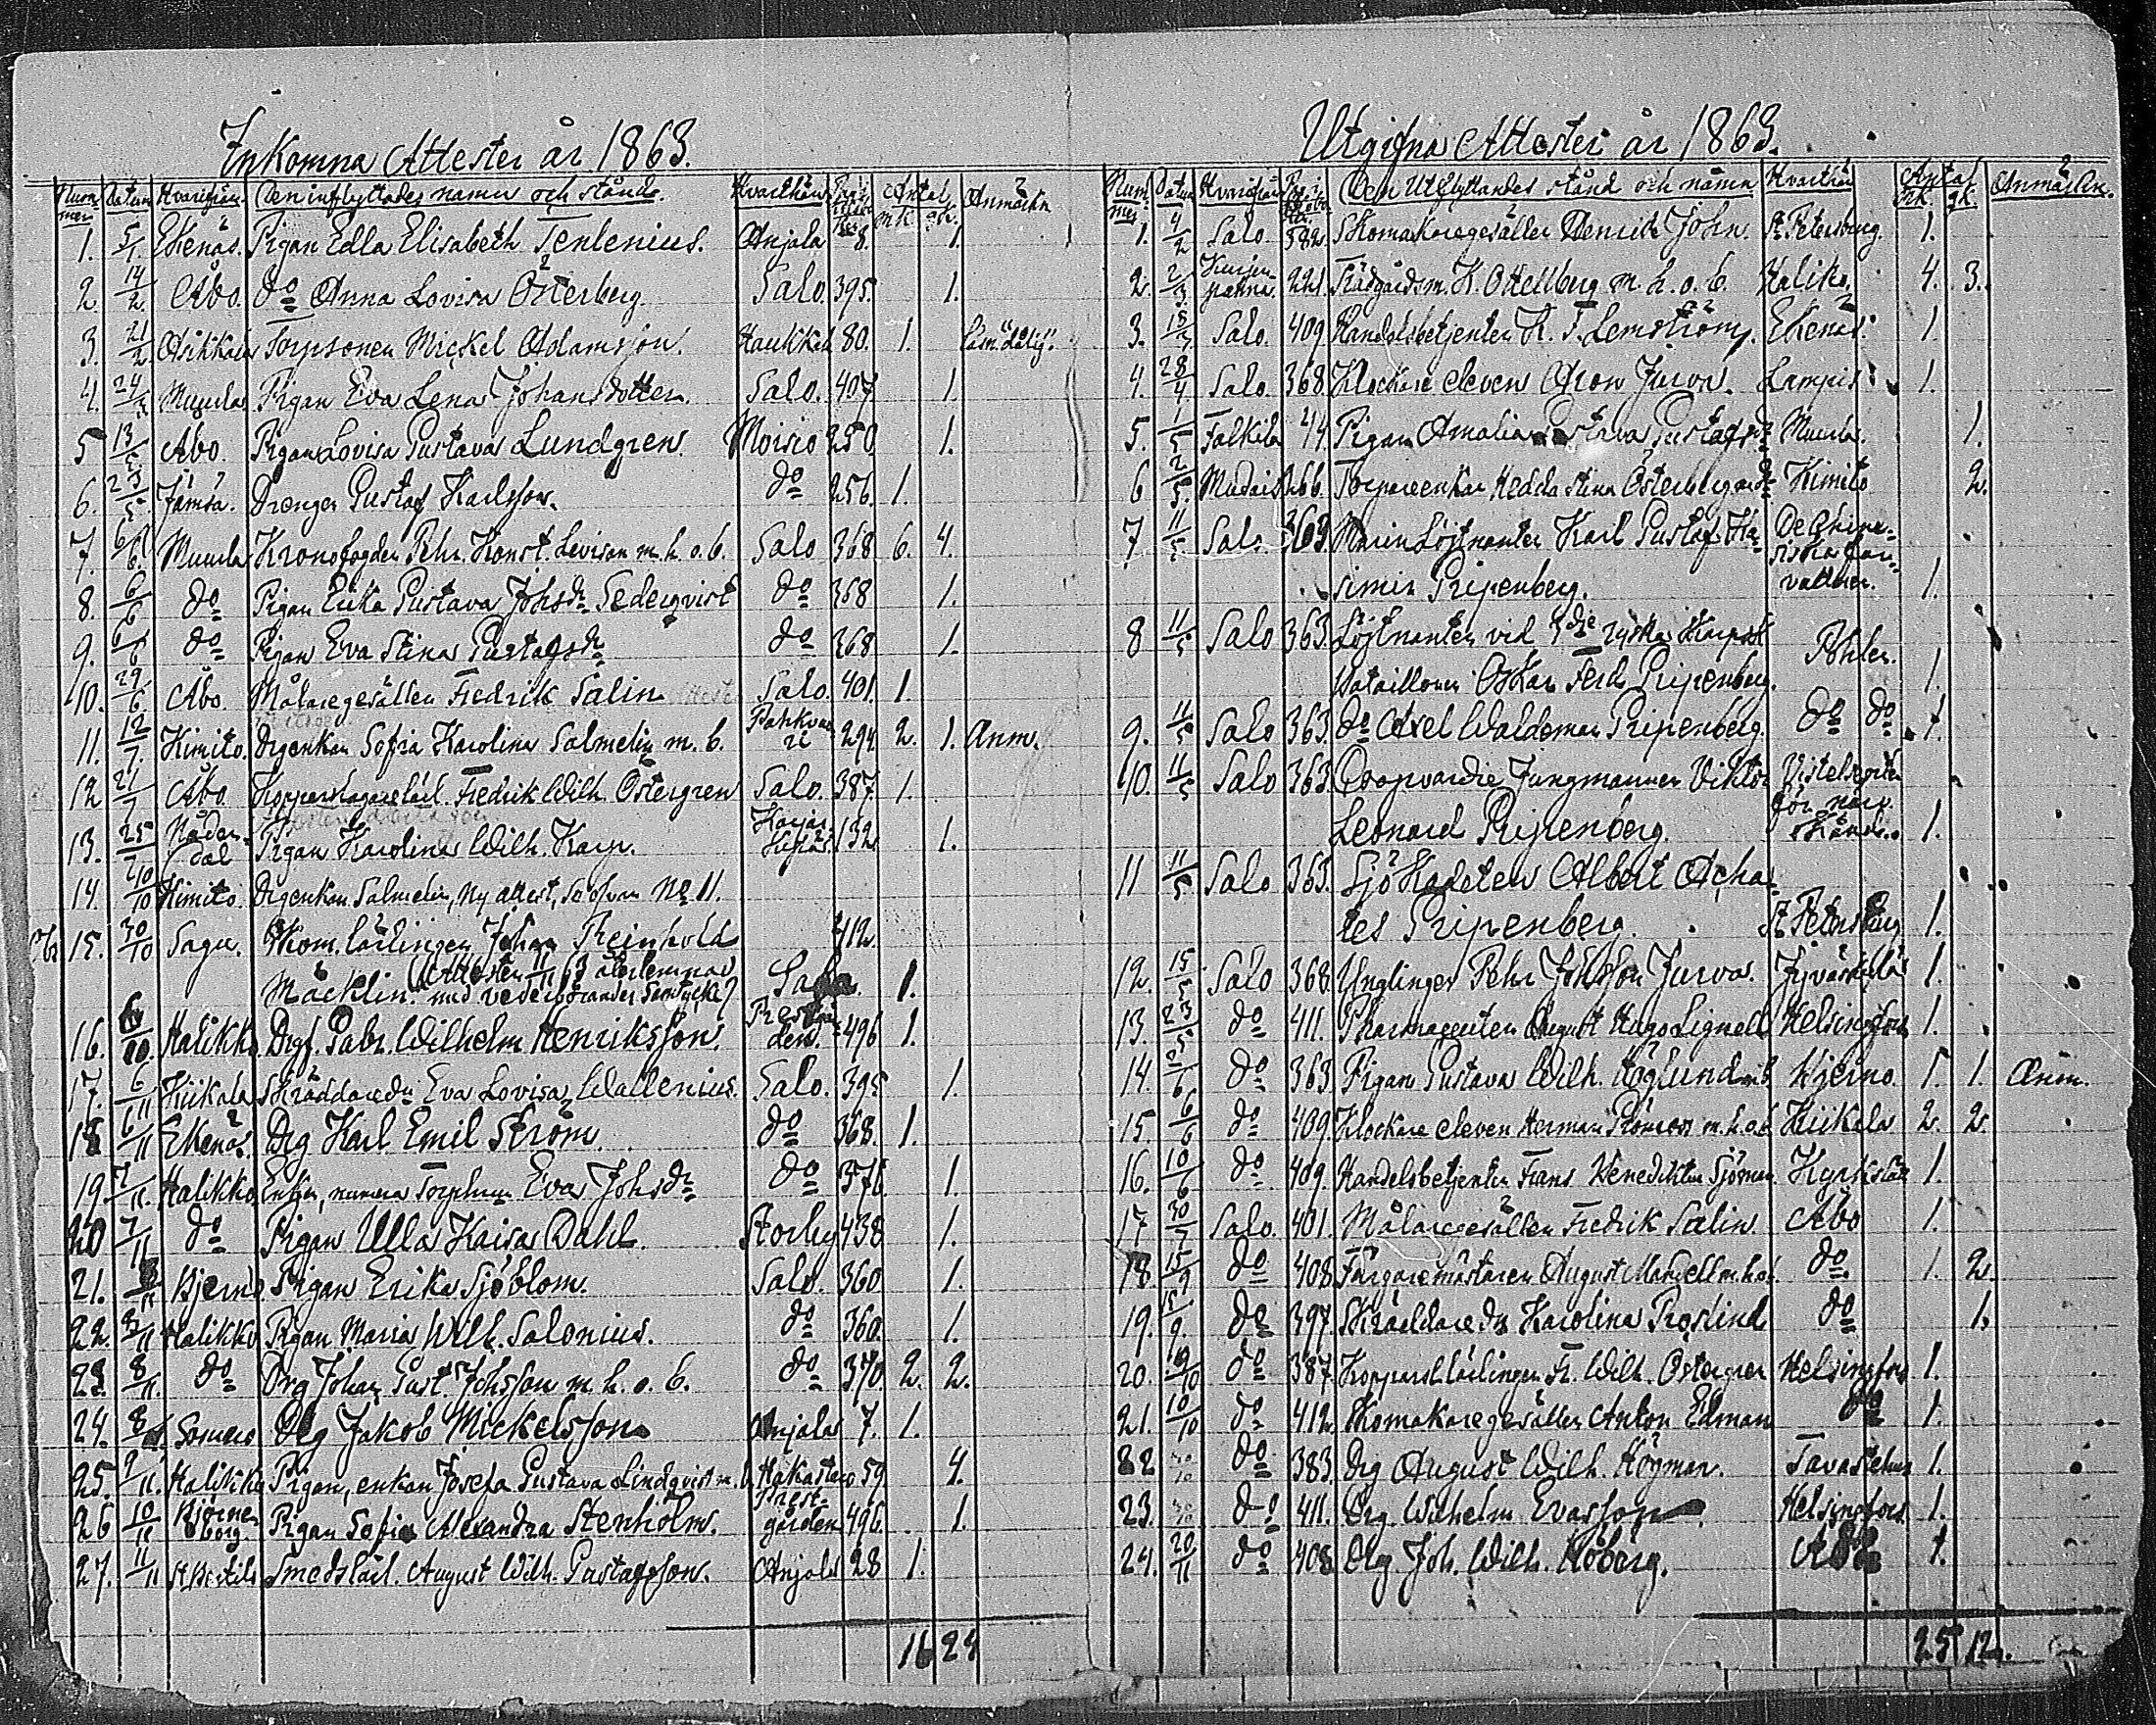 Inkomna Attester år 1863.
Num mer Datum Hvarifrån Den inflyttades namn och stånd. Hvarthän Antal mk. qk. Anmärkn
1. 5/1. Ekenäs. Pigan Edla Elisabeth Tenlenius. Anjala 8. 1.
2. 14/2. Åbo. do Anna Lovisa Österberg. Salo. 395. 1.
3. 21/2 Torpsonen Mickel Adamsson. 80. 1.
4. 24/3 Muurla Pigan Eva Lena Johansdotter. Salo. 407. 1.
5 13/5 Åbo. Pigan Lovisa Gustava Lundgren. Moisio 250. 1.
6. 23/5. Jämsä. Drengen Gustaf Karlsson. do 256. 1.
7. 6/6. Muurla Kronofogden Pehr Konst. Levison m. h. o. b. Salo 368 6. 4.
8. 6/6 do Pigan Erika Gustava Johsdr Sederqvist do 368 1.
9. 6/6 do Pigan Eva Stina Gustafsdr do 368 1.
10. 29/6. Åbo. Målaregesällen Fredrik Salin Salo. 401. 1.
11. 12/7. Kimito. Drgenkan Sofia Karolina Salmelin m. b. 294. 2. 1. Anm.
12 21/7 Åbo. Kopparslagarelärl. Fredrik Wilh. Östergren Salo. 387. 1.
13. 25/ Nåden dal Pigan Karolina Wilh. Karp. 132. 1.
14. /10 Kimito. Drgenkan Salmelin, Ny attest, Se ofvan No 11.
15. 30/10 Sagu. Skom. lärlingen Johan Reinhold 412.
Mäcklin. (Attesten 11/11 63 återlemnad med vederbörandes samtycke) 1.
16. /10. Halikko. Drg. Gabr. Wilhelm Henriksson. Prestgården. 496 1.
17. 6/ Kiikala Skräddaredr Eva Lovisa Wallenius. Salo. 395 1.
18 6/11 Ekenäs. Drg Karl Emil Ström. do 368. 1.
19. 7/11. Halikko. Enkan, numera Torphust. Eva Johsdr do 376. 1.
20 7/11 do Pigan Ulla Kaisa Dahl. Storby 438 1.
21. /11 Bjerno. Pigan Erika Sjöblom. Salo. 360 1.
22. /11 Halikko Pigan Maria Wilh. Salonius. do 360. 1.
23. 8/11. do Drg Johan Gust. Johsson m. h. o. b. do 370. 2. 2.
24. 8/ Somero Drg Jakob Mickelsson Anjala 7. 1.
25. 9/11. Halikko Pigan, enkan Josefa Gustava Lindqvist m. b. Hakastaro 59. 4.
26 10/11 Björneborg. Pigan Sofia Alexandra Stenholm. Prestgården 496. 1.
27. 11/11 St Bertils Smedslärl. August Wilh. Gustafsson. Anjala 28 1.
16 24
Utgifna Attester år 1863.
Num mer Datum Hvarifrån Den Utflyttandes stånd och namn Hvarthän Antal Mk. qk. Anmärkn.
1. 4/2 Salo 382. Skomakaregesällen Henrik John. St. Petersburg. 1.
2. 2/3 221. Trädgårdsm. K. Ottellberg m. h. o. b. Haliko. 4. 3.
3. 15/ Salo. 409. Handelsbetjenten K. F. Lemström. Ekenäs. 1.
4. 28/4 Salo. 368. Klockare eleven Aron Jurva. Lampis. 1.
5. 1/5 Falkila 44. Pigan Amalia Gustava Gustafsdr Muurla. 1.
6 2/5. 266. Torpareenkan Hedda Stina Österberg Kimito 2.
7 11/5 Salo. 363. Marin Löjtnanten Karl Gustaf Kasimir Pripenberg. De Chinesiska farvattnen. 1.
8 11/5 Salo 363. Löjtnanten vid 3die Ryska Skarpsk. Bataillonen Oskar Ferd. Pripenberg. Pohlen. 1.
9. 11/5 Salo 363. do Axel Waldemar Pripenberg. do do 1.
10. 11/5 Salo 363. Coopvardie Jungmannen Viktor Leonard Pripenberg. Vistelseorten för närv. okänd. 1.
11 11/5 Salo 363. Sjö Kadeten Albert Achates Pripenberg. St. Petersburg 1.
12. 15/5 Salo 368. Ynglingen Pehr Johsson Jurva. Jyväskylä 1.
13. 23/5 do 411. Pharmaceuten August Hugo Lignell Helsingfors 1.
14. 2/6 do 363 Pigan Gustava Wilh. Höglund m. b. Bjerno. 1. 1. Anm.
15. 6/6 do 409. Klockare eleven Herman m. h. o. b. Kiikala 2. 2.
16. 10/6 do 409. Handelsbetjenten Frans Benediktus Sjöman Kyrkslätt 1.
17 30/7 Salo. 401. Målaregesällen Fredrik Salin. Åbo 1.
18. 15/9 do 408. Färgaremästaren August Mansell m. h. o. b. do 1. 2.
19. 15/9. do 397. Skräddaredr Karolina Roslind do 1.
20. /10 do 387. Kopparsl. lärlingen Fr. Wilh. Östergren Helsingfors 1.
21. 10/10 do 412. Skomakaregesällen Anton Edman do 1.
22 do 383. Drg August Wilh. Högman. Tavastehus 1.
23. do 411. Drg. Wilhelm Evasson. Helsingfors 1.
24. 20/11 do 408. Drg. Joh. Wilh. Åbo 1.
25 12.